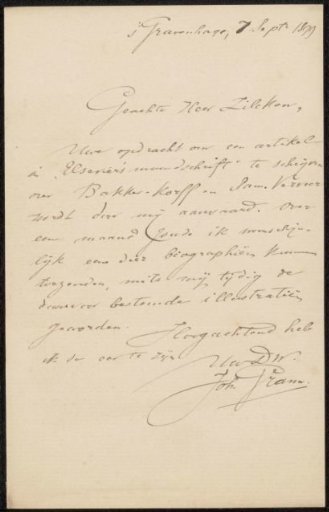 's Gravenhage, 7 Sept. 1899
Geachte Heer Zilcken,
Uwe opdracht om een artikel
in "Elsevier's maandschrift" te schrijven
over Bakker-Korff en Sam. Verveer
wordt door mij aanvaard. Over
een maand zoude ik waarschijn-
lijk een dier biographiën kunnen
toezenden, mits mij tijdig de
daarvoor bestemde illustratiën
geworden.
Hoogachtend heb
ik de eer te zijn
Uw Dw.
Joh. Gram.